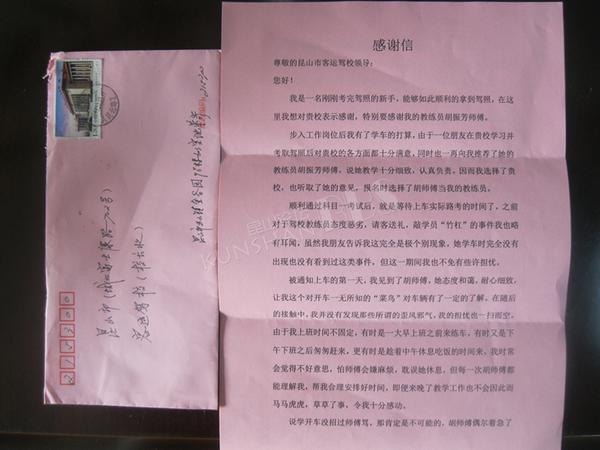 感谢信
尊敬的昆山市客运驾校领导：
您好！
我是一名刚刚考完驾照的新手，能够如此顺利的拿到驾照，在这
里我想对贵校表示感谢，特别要感谢我的教练员胡振芳师傅。
步入工作岗位后我有了学车的打算，由于一位朋友在贵校学习并
考取驾照后对贵校的各方面都十分满意，同时也一再向我推荐了她的
教练员胡振芳师傅，说她教学十分细致，认真负责。因而我选择了贵
校，也听取了她的意见，报名时选择了胡师傅当我的教练员。
顺利通过科目一考试后，就是等待上车实际路考的时间了，之前
对于驾校教练员态度恶劣，请客送礼，敲学员“竹杠”的事件我也略
有耳闻，虽然我朋友告诉我这完全是极个别现象，她学车时完全没有
出现也没有看到过这类事件，但这一期间我也不免有些许担忧。
被通知上车的第一天，我见到了胡师傅，她态度和蔼，耐心细致，
让我这个对开车一无所知的“菜鸟”对车辆有了一定的了解。在随后
的接触中，我并没有发现那些所谓的歪风邪气，我的担忧也一扫而空。
由于我上班时间不固定，有时是一大早上班之前来练车，有时又是下
午下班之后匆匆赶来，更有时是趁着中午休息吃饭的时间来，我时常
会觉得不好意思，怕师傅会嫌麻烦，耽误她休息，但每一次胡师傅都
能理解我，帮我合理安排好时间，即便来晚了教学工作也不会因此而
马马虎虎，草草了事，令我十分感动。
说学开车没招过师傅骂，那肯定是不可能的，胡师傅偶尔着急了
215300
昆山市
客运驾校